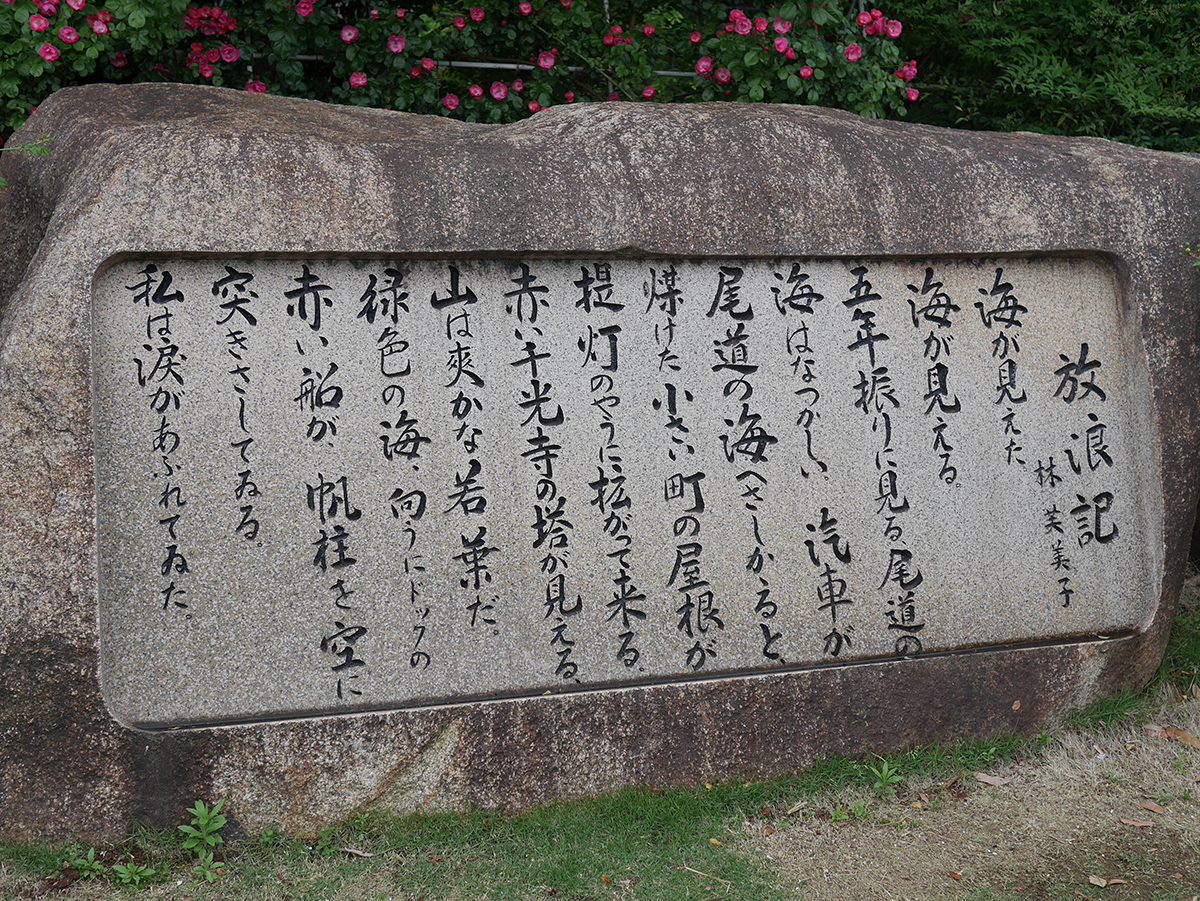 放浪記
林芙美子
海が見えた、
海が見える。
五年振りに見る、尾道の
海はなつかしい。汽車が
尾道の海へさしかゝると、
煤けた小さい町の屋根が
提灯のやうに拡がって来る。
赤い千光寺の塔が見える、
山は爽かな若葉だ。
緑色の海、向うにドックの
赤い船が、帆柱を空に
突きさしてゐる。
私は涙があふれてゐた。